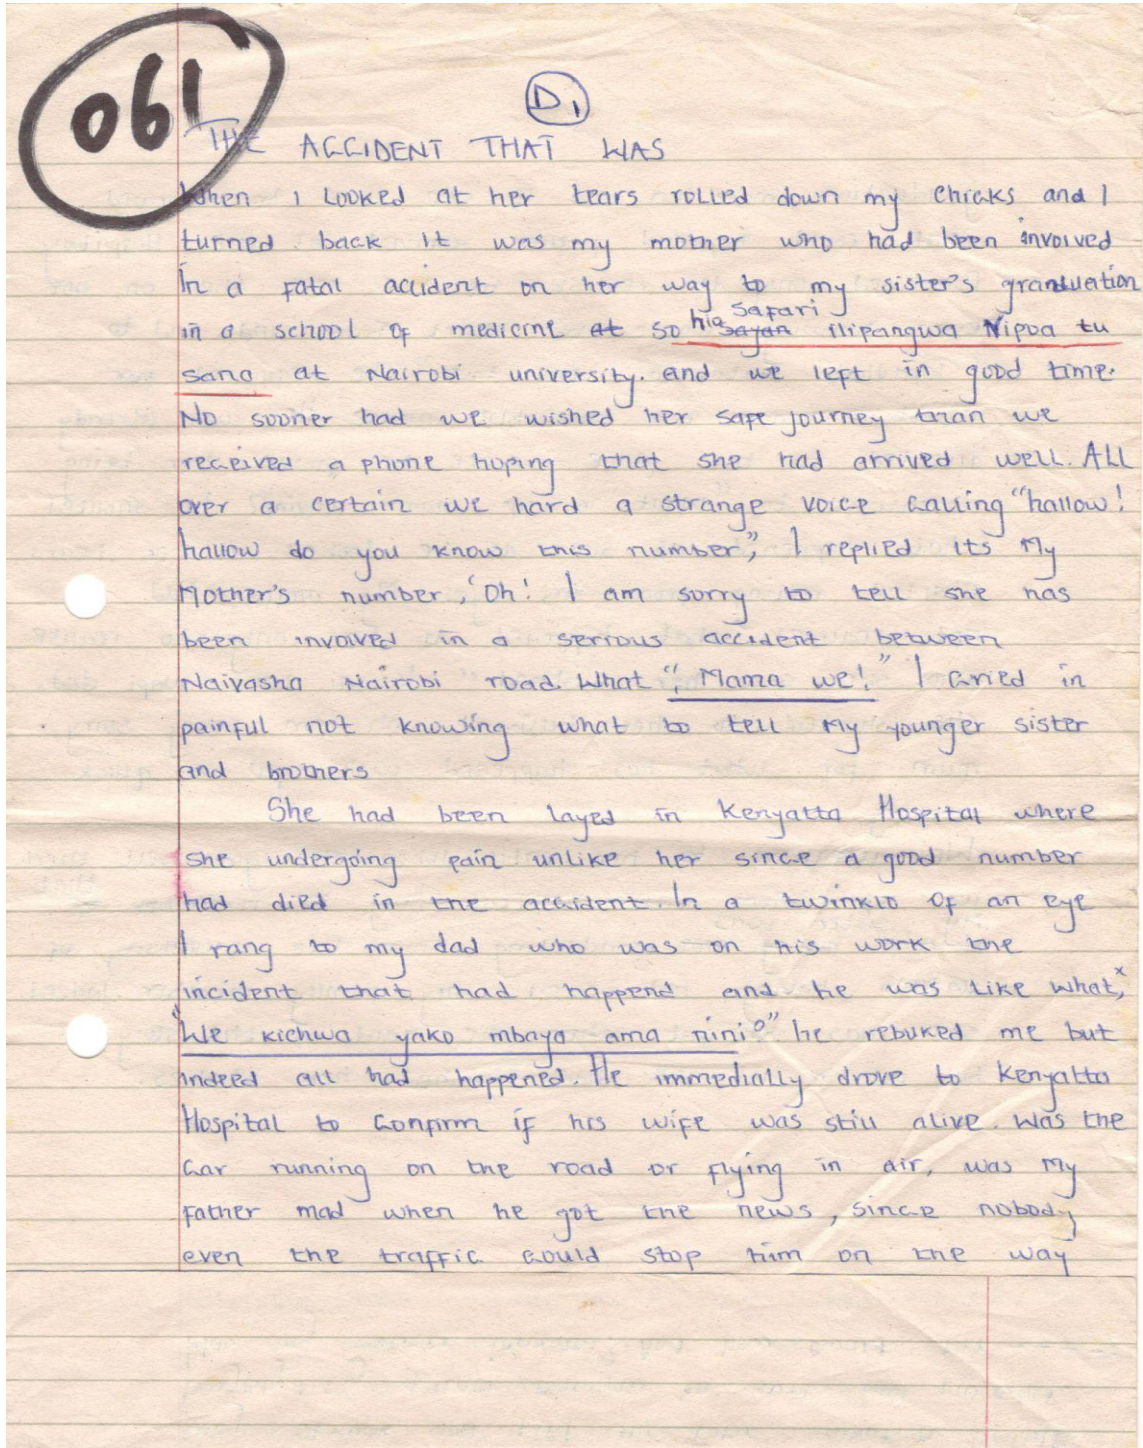 061
D1
THE ACCIDENT THAT WAS
When I Looked at her tears rolled down my chicks and I
turned back It was my mother who had been involved
In a fatal accident on her way to my sister's
in a school of medicine at so hio safari ilipangwa Nipoa tu
sana at Nairobi university. and we left in good time.
No sooner had we wished her safe journey than we
received a phone hoping that she had arrived well. All
over a certain we hard a strange voice calling "hallow!
hallow do you know this number", I replied its My
Mother's number, 'Oh! I am sorry to tell she has
been involved in a serious accident between
Naivasha Nairobi road. What ", Mama we!" I cried in
painful not knowing what to tell My younger sister
and brothers
She had been layed in Kenyatta Hospital where
she undergoing pain unlike her since a good number
had died in the accident. In a of an eye
I rang to my dad who was on his work the
incident that had happend and he was like what,
"We kichwa yako mbaya ama nini" he rebuked me but
indeed all had happened. He immedially drove to Kenyatta
Hospital to confirm if his wife was still alive. Was the
Car running on the road or flying in air, was My
father mad when he got the news, since nobody
even the traffic could stop him on the way